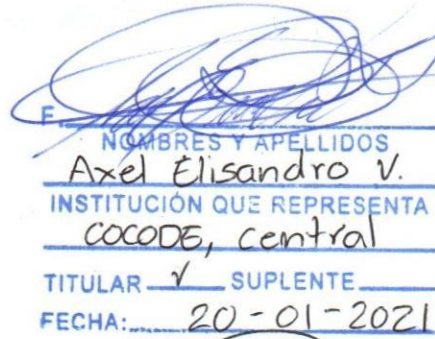 F.
NOMBRES Y APELLIDOS
Axel Elisandro V.
INSTITUCIÓN QUE REPRESENTA
COCODE, central
TITULAR √ SUPLENTE
FECHA: 20-01-2021